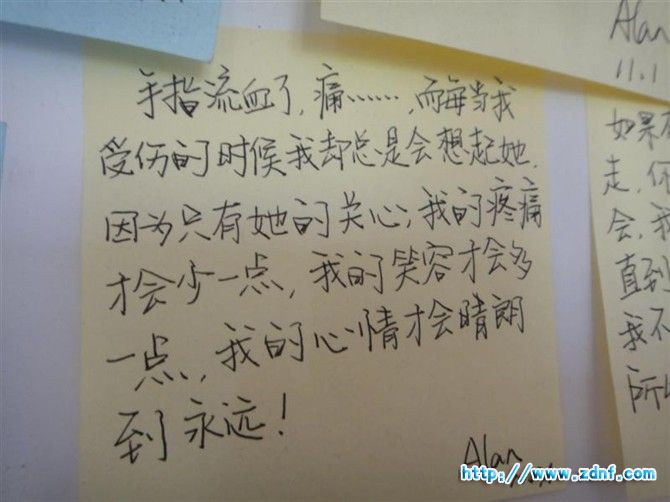 Alan
11.1
手指流血了,痛……,而每当我
受伤的时候我却总是会想起她,
因为只有她的关心;我的疼痛
才会少一点,我的笑容才会多
一点,我的心情才会晴朗
到永远!
Alan
如果
走,你
会,我
直到
我不
所以
http://www.zdnf.com